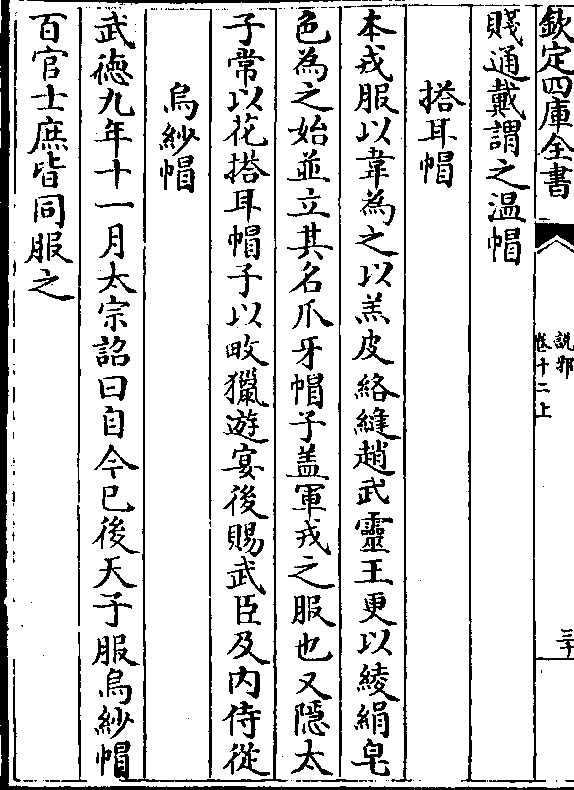 欽定四庫全書
說郛
卷十二上
三十
賤通戴謂之温帽
搭耳帽
本戎服以韋為之以羔皮絡縫趙武靈王更以綾絹皂
色為之始並立其名爪牙帽子盖軍戎之服也又隠太
子常以花搭耳帽子以畋獵遊宴後賜武臣及内侍從
烏紗帽
武徳九年十一月太宗詔曰自今已後天子服烏紗帽
百官士庶皆同服之